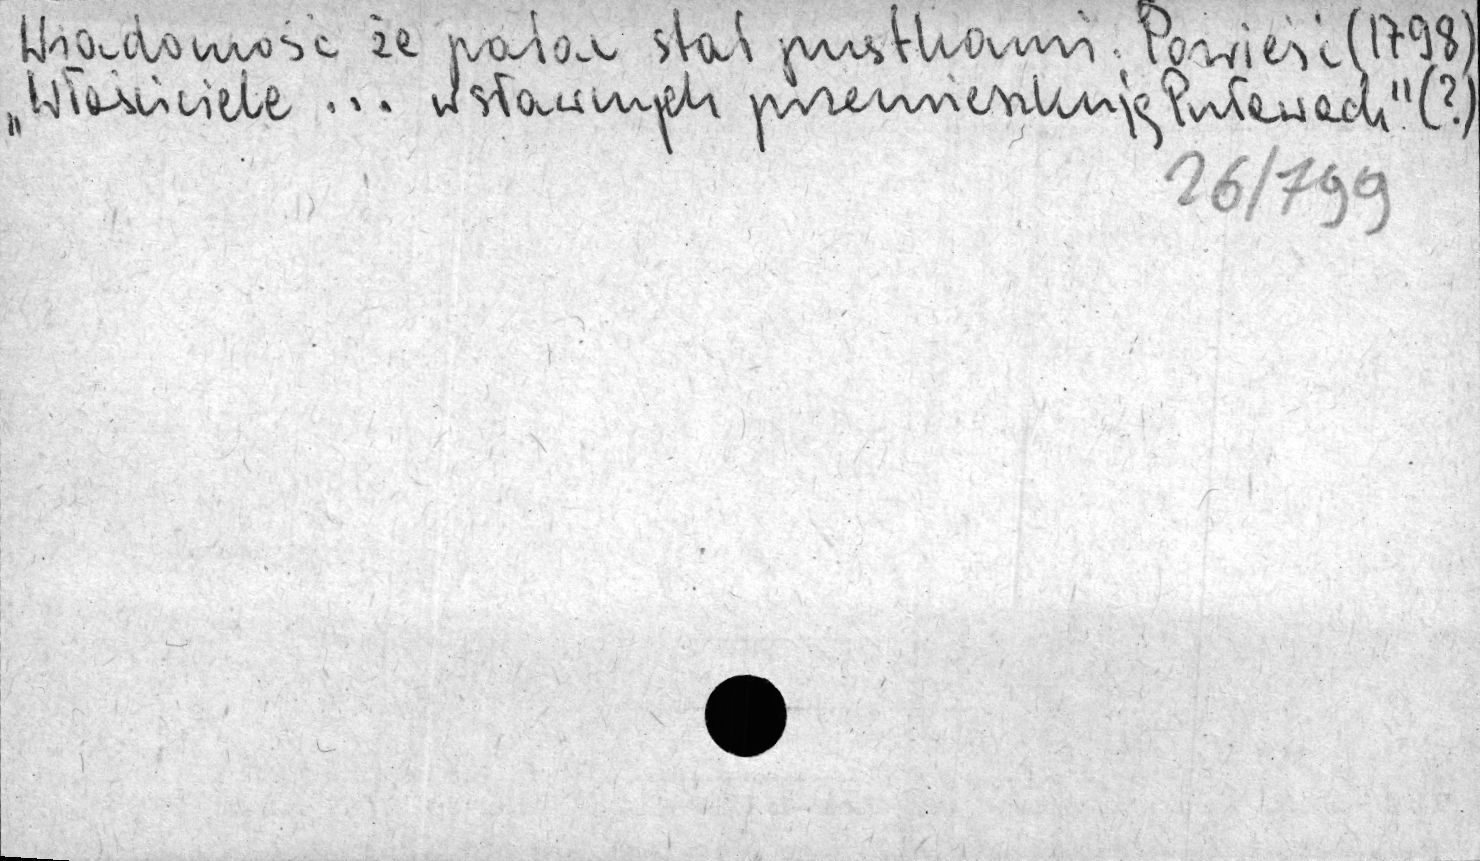 Wiadomość że pałac stał pustkami. Powieść (1798)
„Właściciele ... wsławnych przemieszkują Puławach" (?)
26/799